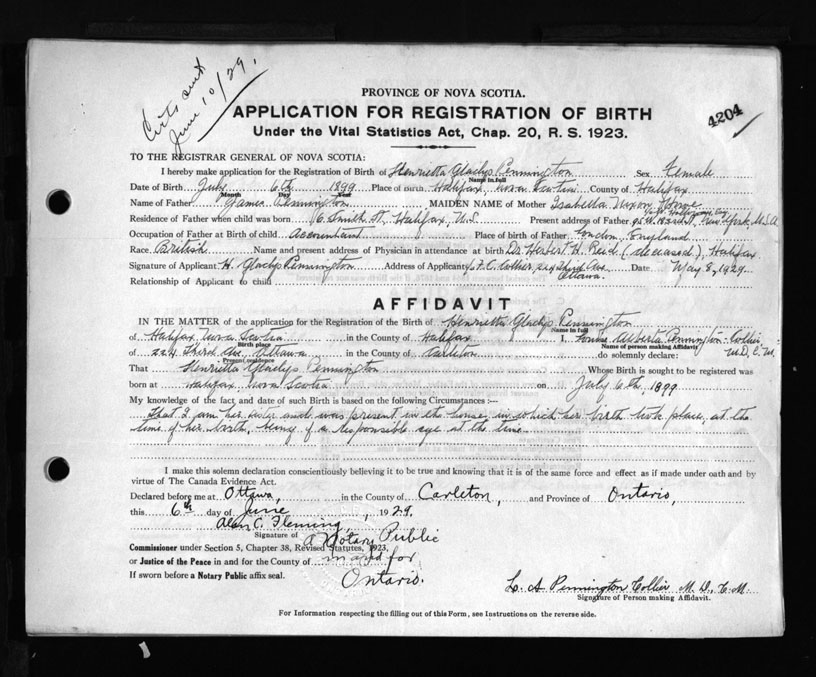 Certs sent
June 10/29.
4204
PROVINCE OF NOVA SCOTIA.
APPLICATION FOR REGISTRATION OF BIRTH
Under the Vital Statistics Act, Chap. 20, R. S. 1923.
TO THE REGISTRAR GENERAL OF NOVA SCOTIA:
I hereby make application for the Registration of Birth of Henrietta Gladys Pennington Sex Female
Name in full
Date of Birth July 6th 1899 Place of Birth Halifax, Nova Scotia County of Halifax
Month Day Year
Name of Father James Pennington MAIDEN NAME of Mother Isabella Nixon
Residence of Father when child was born 16 Smith St, Halifax, N.S. Present address of Father New York, U.S.A
Occupation of Father at Birth of child Accountant Place of birth of Father London, England
Race British Name and present address of Physician in attendance at birth Dr Herbert H. Reid (deceased), Halifax
Signature of Applicant H. Gladys Pennington Address of Applicant Third Ave Date May 8, 1929.
Ottawa.
Relationship of Applicant to child
AFFIDAVIT
IN THE MATTER of the application for the Registration of the Birth of Henrietta Gladys Pennington
Name in full
of Halifax Nova Scotia in the County of Halifax I, Louise Alberta Pennington-Collier,
Birth place Name of person making Affidavit
of 224 Third Ave, Ottawa in the County of Carleton do solemnly declare: M.D., C.M.
Present residence
That Henrietta Gladys Pennington Whose Birth is sought to be registered was
born at Halifax Nova Scotia on July 6th, 1899
My knowledge of the fact and date of such Birth is based on the following Circumstances :—
That I am her sister and was present in the house in which her birth took place, at the
time of her birth, being of a responsible age at the time
I make this solemn declaration conscientiously believing it to be true and knowing that it is of the same force and effect as if made under oath and by
virtue of The Canada Evidence Act.
Declared before me at Ottawa, in the County of Carleton, and Province of Ontario,
this 6th day of June, 1929.
Alan C. Fleming,
Signature of
a Notary Public
Commissioner under Section 5, Chapter 38, Revised Statutes, 1923,
or Justice of the Peace in and for the County of in and for
If sworn before a Notary Public affix seal. Ontario.
L. A. Pennington Collier M.D., C.M.
Signature of Person making Affidavit.
For Information respecting the filling out of this Form, see Instructions on the reverse side.